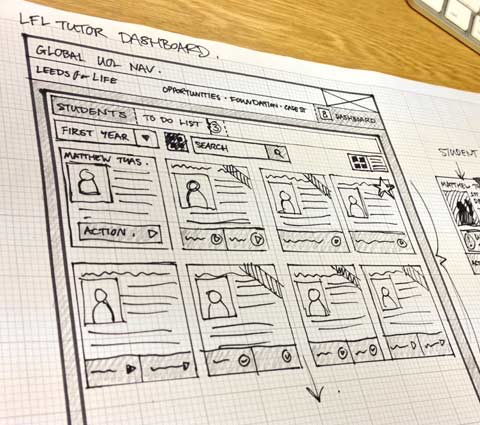 LFL TUTOR DASHBOARD.
GLOBAL UOL NAV.
LEEDS for LIFE
OPPORTUNITIES · FOUNDATION ·
DASHBOARD
STUDENTS TO DO LIST 3
FIRST YEAR
SEARCH
MATTHEW TOAS.
ACTION.
STUDENT
MATTHEW